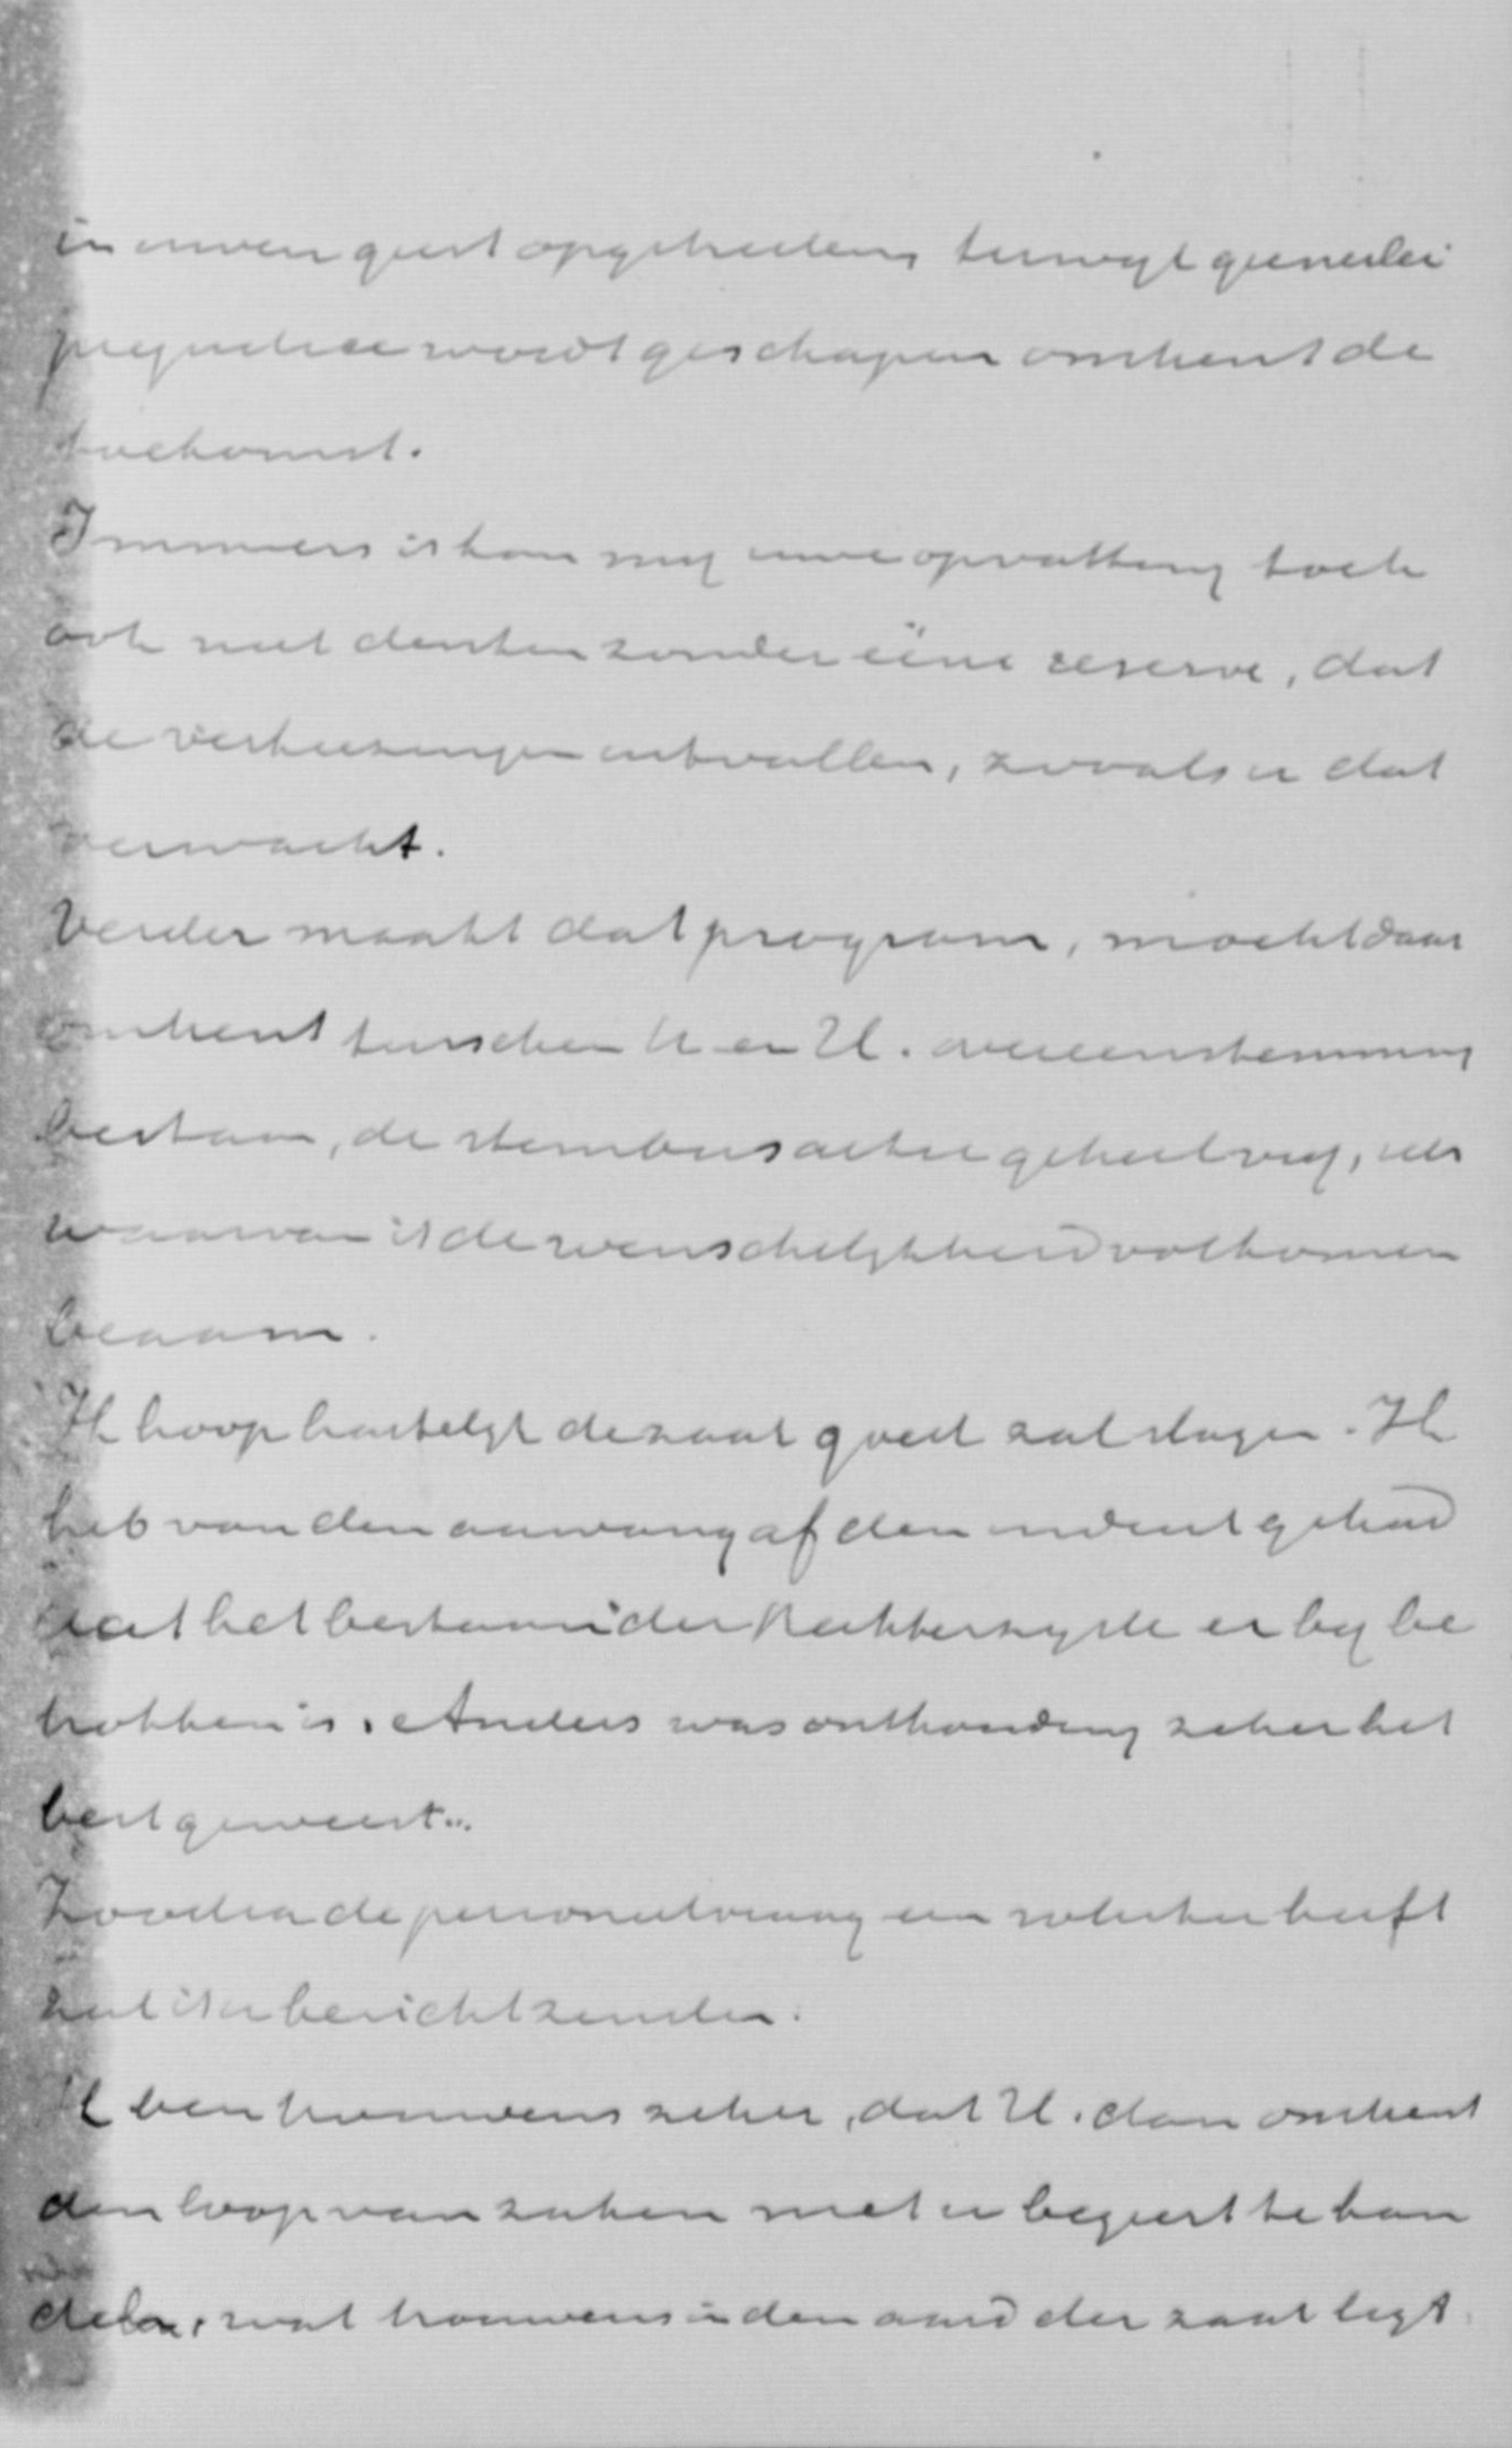 in uwen geest opgetreden, terwyl geenerlei
prejudice wordt geschapen omtrent de
toekomst.
Immers ik kan my uwe opvatting toch
ook niet denken zonder ééne reserve, dat
de verkiezingen uitvallen, zooals u dat
verwacht.
Verder maakt dat program, mocht daar
omtrent tusschen U en U. overeenstemming
bestaan, de stembusactie geheel vry, iets
waarvan ik de wenschelykheid volkomen
beaam.
Ik hoop hartelyk de zaak goed zal slagen. Ik
heb van den aanvang af den indruk gehad
dat het bestaan der Rechterzyde er by be
trokken is. Anders was onthouding zeker het
best geweest.
Zoodra de personeelvraag een zekerheid heeft
zal ik u bericht zenden.
Ik ben trouwens zeker, dat U. dan omtrent
den loop van zaken met u begeert te han
delen, wat trouwens in den aard der zaak ligt.